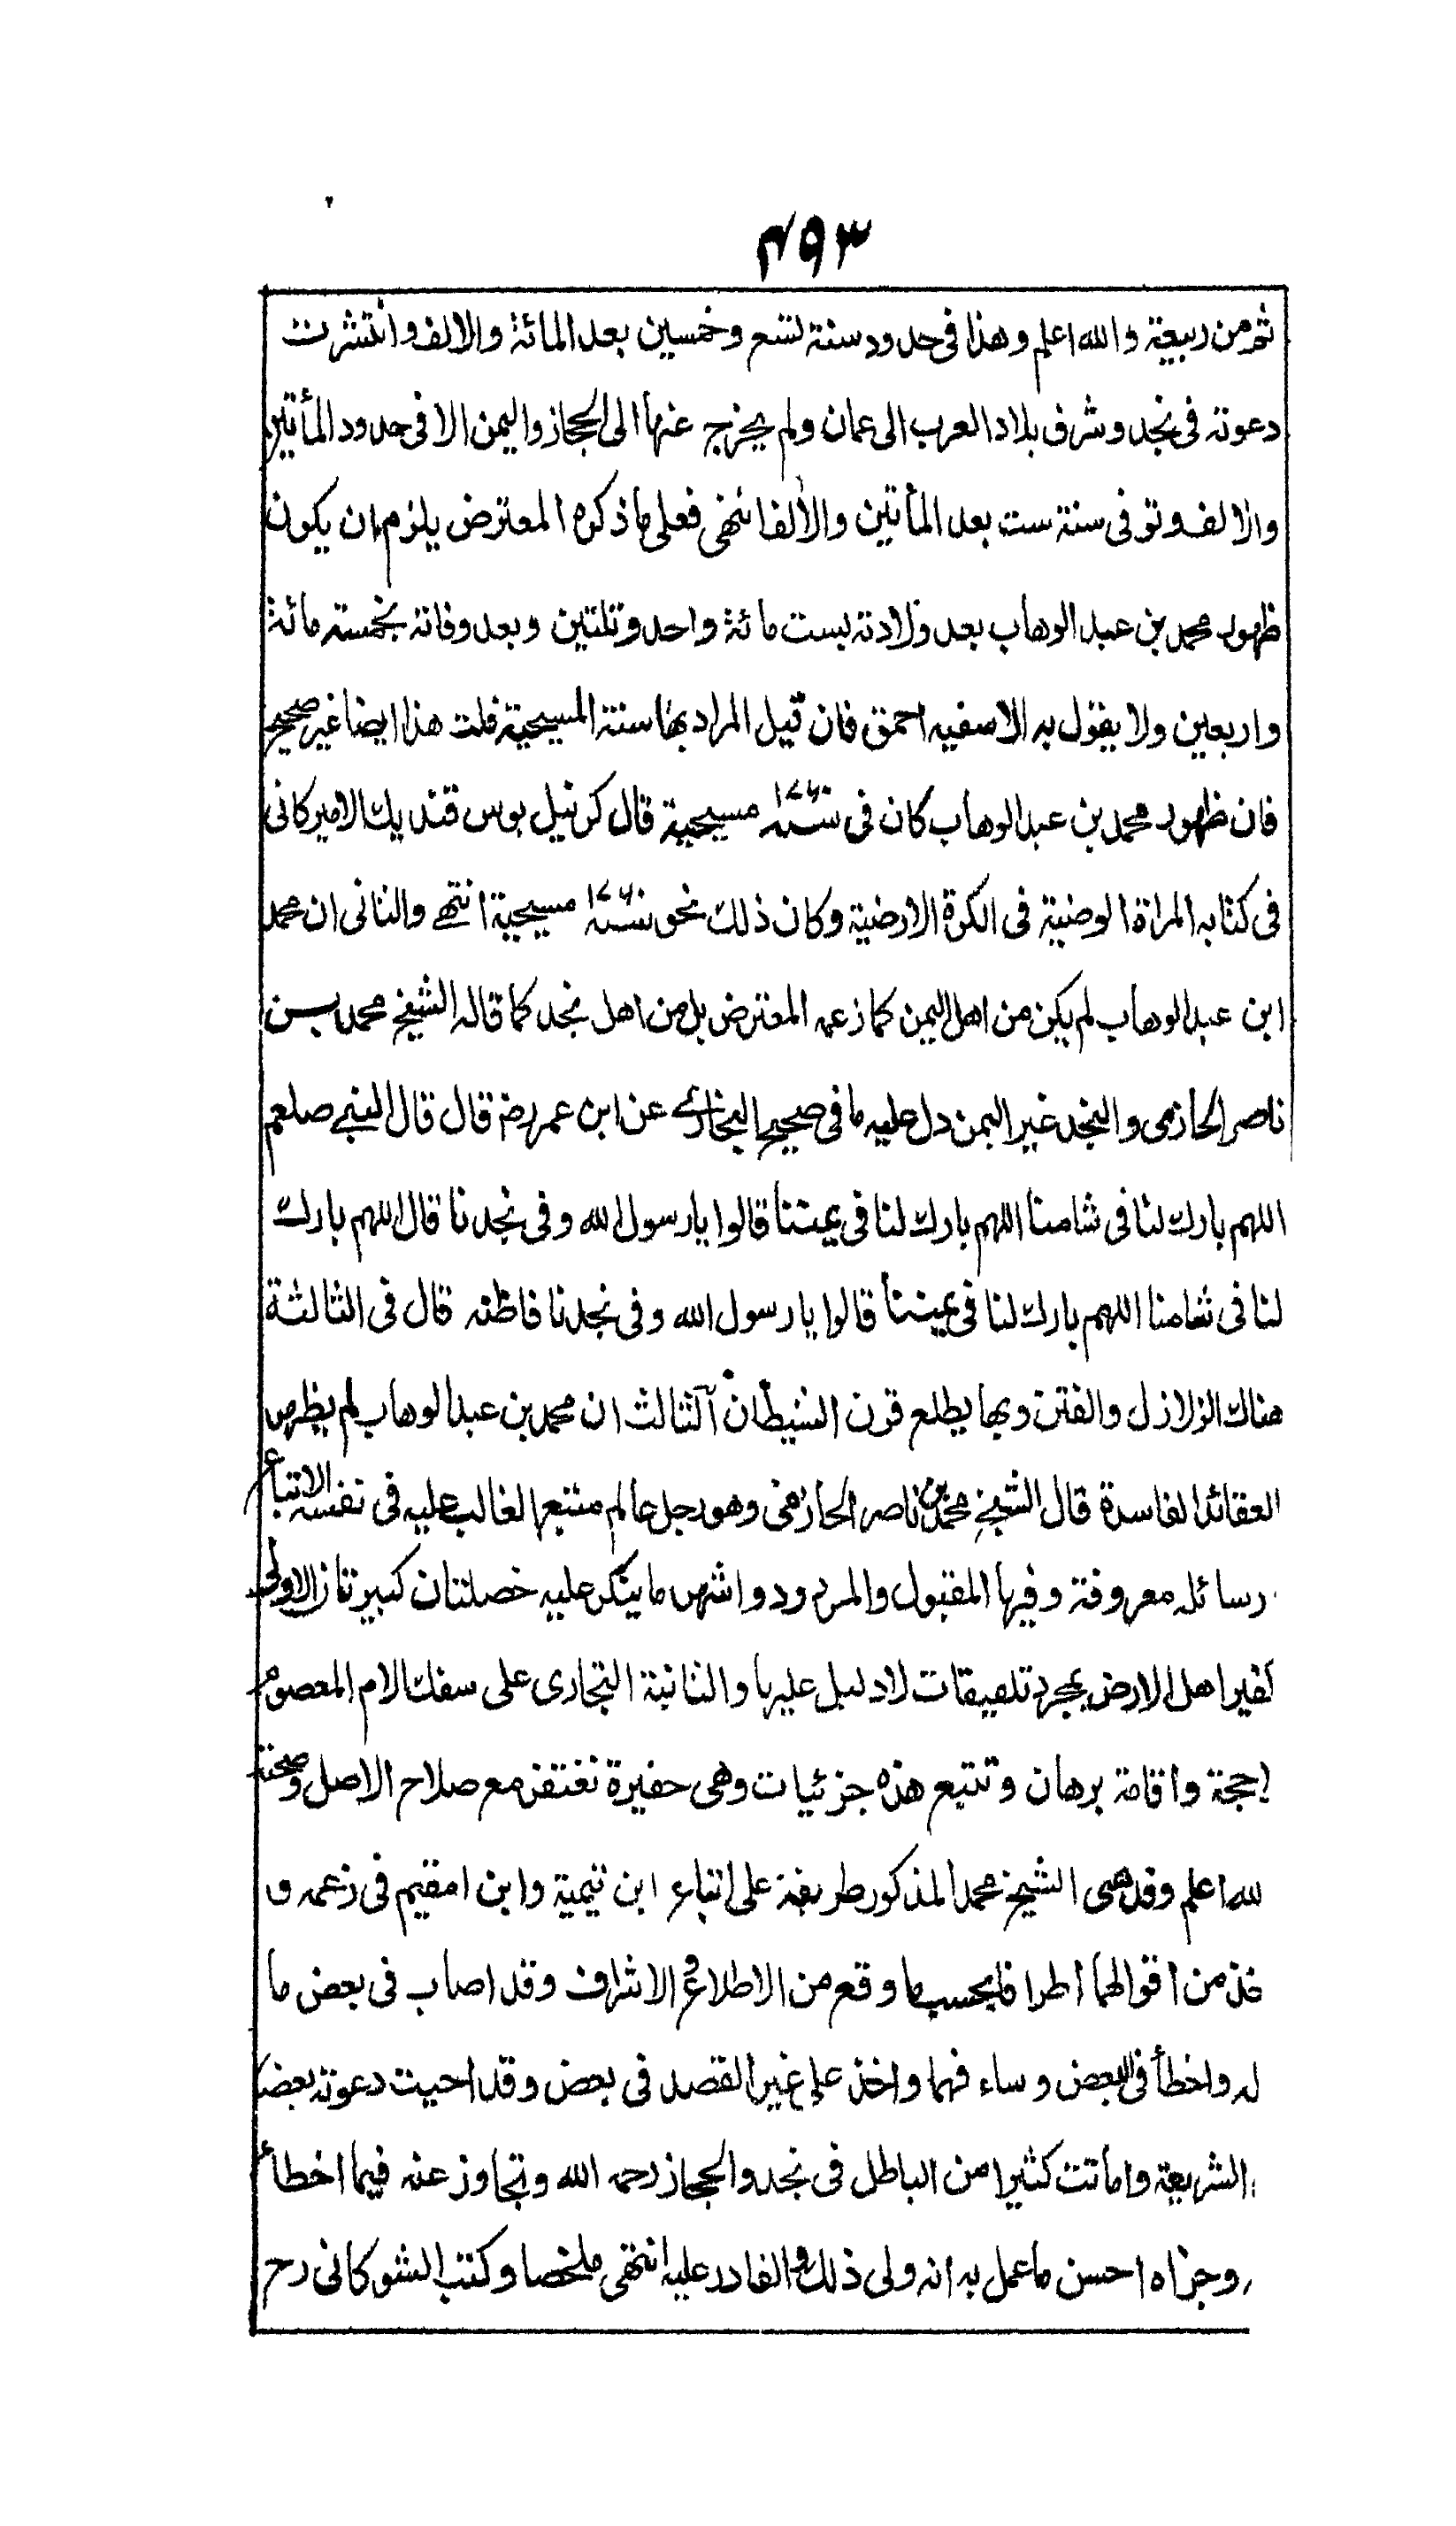 ٤٩٣
ثم من ربيعة والله اعلم وهذا فى حدود سنة تسع وخمسين بعد المائة والالف وانتشرت
دعوته فى نجد وشرق بلاد العرب الى عمان ولم يخرج عنها الى الحجاز واليمن الا فى حدود المأتين
والالف وتوفى سنة ست بعد المأتين والالف انتهى فعلى ما ذكره المعترض يلزم ان يكون
ظهور محمد بن عبد الوهاب بعد ولادته بست مائة واحد وثلثين وبعد وفاته بخمسة مائة
واربعين ولا يقول به الا سفيه احمق فان قيل المراد بها سنة المسيحية قلت هذا ايضا غير صحيح
فان ظهور محمد بن عبد الوهاب كان فى سنة ١٧٦٠ مسيحية قال كرنيل بوس قنديك الاميركانى
فى كتابه المراة الوضية فى الكرة الارضية وكان ذلك نحو سنة ١٧٦٠ مسيحية انتهے والثانى ان محمد
ابن عبد الوهاب لم يكن من اهل اليمن كما زعمه المعترض بل من اهل نجد كما قاله الشيخ محمد بن
ناصر الحازمى والنجد غير اليمن دل عليه ما فى صحيح البخارے عن ابن عمر رضه قال قال النبے صلعم
اللهم بارك لنا فى شامنا اللهم بارك لنا فى يمننا قالوا يا رسول الله وفى نجدنا قال اللهم بارك
لنا فى شامنا اللهم بارك لنا فى يمننا قالوا يا رسول الله وفى نجدنا فاظنه قال فى الثالثة
هناك الزلازل والفتن وبها يطلع قرن الشيطان الثالث ان محمد بن عبد الوهاب لم يظهر
العقائد الفاسدة قال الشيخ محمد بن ناصر الحازمى وهو رجل عالم متبع الغالب عليه فى نفسه الاتباع
رسائله معروفة وفيها المقبول والمردود واشهر ما ينكر عليه خصلتان كبيرتان الاولى
كفير اهل الارض بمجرد تلفيقات لا دليل عليها والثانية التجارى على سفك الدم المعصوم
احجة واقامة برهان وتتبع هذه جزئيات وهى حقيرة تغتفر مع صلاح الاصل وصحته
لله اعلم وقد مى الشيخ محمد المذكور طريقة على اتباع ابن تيمية وابن امقيم فى زعمه و
خذ من اقوالهما اطرافا بحسب ما وقع من الاطلاع والاشراف وقد اصاب فى بعض ما
له واخطأ فى البعض وساء فهما واخذ على غير القصد فى بعض وقد احيت دعوته بعض
الشريعة واماتت كثيرا من الباطل فى نجد والحجاز رحمه الله وتجاوز عنه فيما اخطأ
وجزاه احسن ما عمل به انه ولى ذلك والقادر عليه انتهى ملخصا وكتب الشوكانى رح